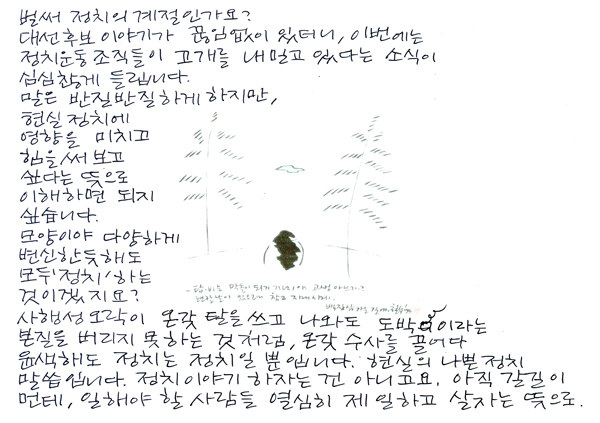 벌써 정치의 계절인가요?
대선후보 이야기가 끊임없이 있더니, 이번에는
정치운동 조직들이 고개를 내밀고 있다는 소식이
심심찮게 들립니다.
말은 반질반질하게 하지만,
현실정치에
영향을 미치고
힘을 써보고
싶다는 뜻으로
이해하면 되지
싶습니다.
모양이야 다양하게
변신한듯해도
모두 '정치' 하는
것이겠지요?
사행성 오락이 온갖 탈을 쓰고 나와도 도박'일'이라는
본질을 버리지 못하는 것처럼, 온갖 수사를 끌어다
윤색해도 정치는 정치일 뿐입니다. 현실의 나쁜 정치
말씀입니다. 정치이야기 하자는 건 아니고요. 아직 갈길이
먼데, 일해야 할 사람들 열심히 제 일하고 살자는 뜻으로.